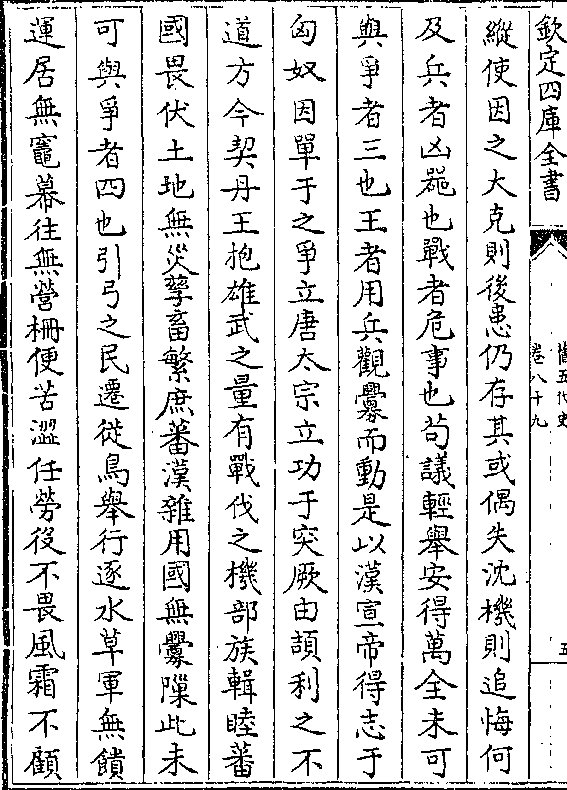 欽定四庫全書
舊五代史
卷八十九
五
縱使因之大克則後患仍存其或偶失沈機則追悔何
及兵者凶噐也戰者危事也苟議輕舉安得萬全未可
與爭者三也王者用兵觀釁而動是以漢宣帝得志于
匈奴因單于之爭立唐太宗立功于突厥由頡利之不
道方今契丹王抱雄武之量有戰伐之機部族輯睦蕃
國畏伏土地無災孽畜繁庶蕃漢雜用國無釁隟此未
可與爭者四也引弓之民遷徙鳥舉行逐水草軍無饋
運居無竈幕往無營柵便苦澀任勞役不畏風霜不顧